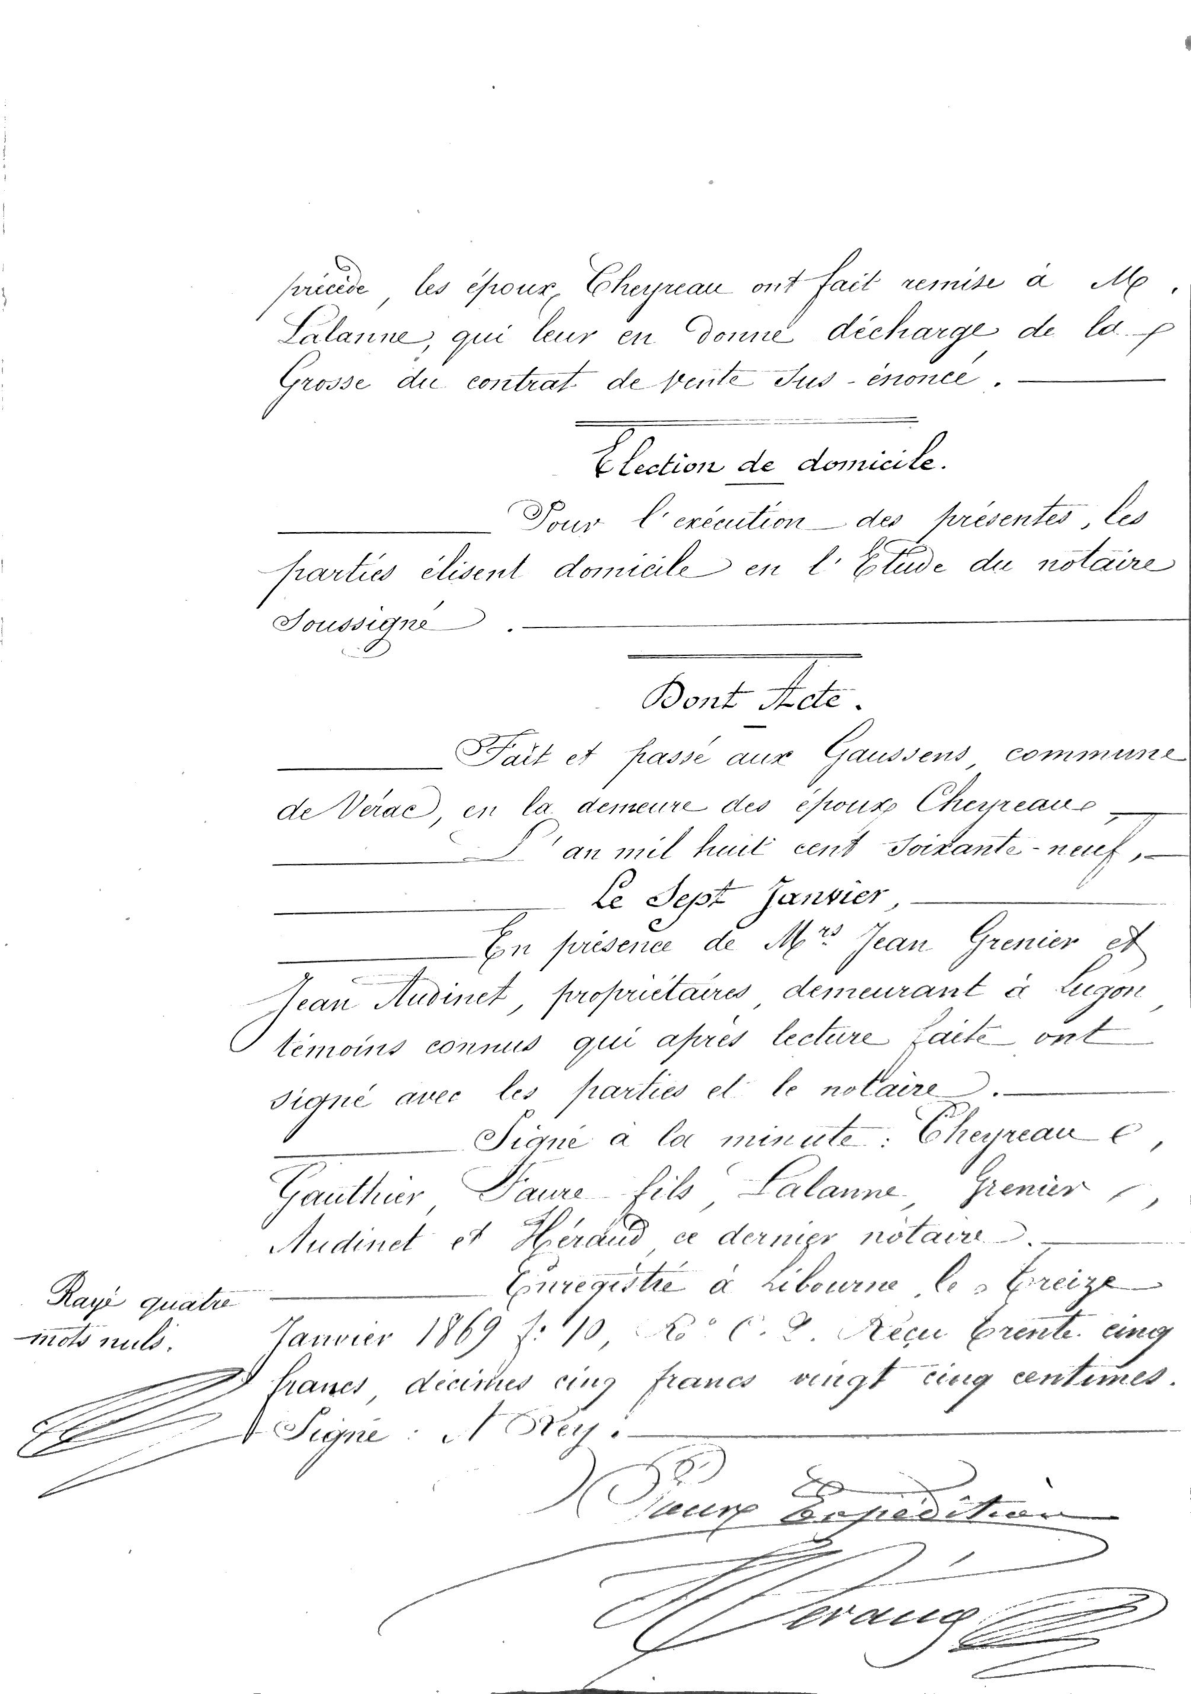 précède, les époux Cheyreau ont fait remise à M.
Lalanne, qui leur en donne décharge, de la
Grosse du contrat de vente sus-énoncé.
Election de domicile.
Pour l'exécution des présentes, les
parties élisent domicile en l'Etude du notaire
Soussigné.
Dont Acte.
Fait et passé aux Gaussens, commune
de Vérac, en la demeure des époux Cheyreau,
L'an mil huit cent soixante-neuf,
Le Sept Janvier,
En présence de Mrs Jean Grenier et
Jean Audinet, propriétaires, demeurant à Lugon,
témoins connus qui après lecture faite ont
signé avec les parties et le notaire.
Signé à la minute : Cheyreau,
Gauthier, Faure fils, Lalanne, Grenier,
Audinet et Héraud, ce dernier notaire.
Enregistré à Libourne, le treize
Janvier 1869 f: 10, Ro C. 2. Reçu trente cinq
francs, décimes cinq francs vingt cinq centimes.
Signé : A Rey.
Rayé quatre
mots nuls.
Pour Expédition
Héraud